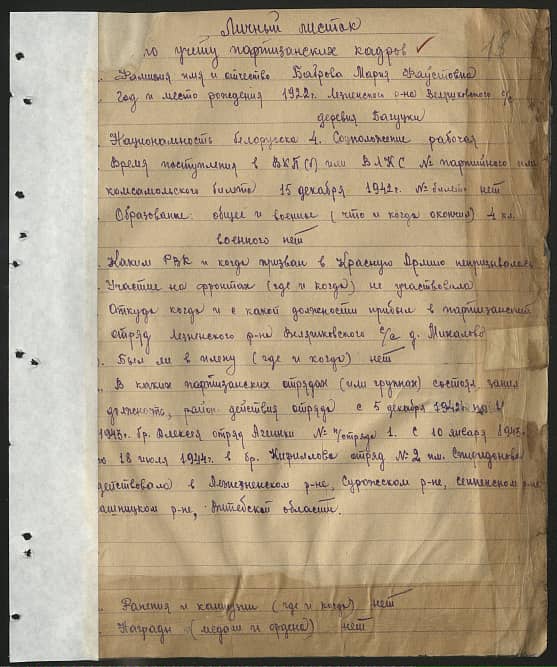 Личный листок
по учету партизанских кадров ✓ 18
Фамилия имя и отчество Баброва Мария Фаустовна
Год и место рождения 1922г. Лезненского р-на Велешковского с/с
деревня Багучки
Национальность белорусска 4. Соцположение рабочая
Время поступления в ВКП(б) или ВЛКС № партийного или
комсомольского билета 15 декабря 1942г. № билета нет
Образование: общее и военное (что и когда окончил) 4 кл.
военного нет
Каким РВК и когда призван в Красную Армию непризывалась
Участие на фронтах (где и когда) не участвовала
Откуда когда и с какой должности прибыл в партизанский
отряд Лезненского р-на Веляшковского с/с д. Михалово
Был ли в плену (где и когда) нет
В каких партизанских отрядах (или группах) состоял занил
должность, район действия отряда с 5 декабря 1942г по
1943г. бр. Алексея отряд № отряда 1. С 10 января 1943г.
по 18 июля 1944г. в бр. Кириллова отряд № 2 им.
действовала в Лезненском р-не, Суражском р-не, Сенненском р-не
ашницком р-не, Витебской области.
Ранения и контузии (где и когда) нет
Награды (медали и ордена) нет